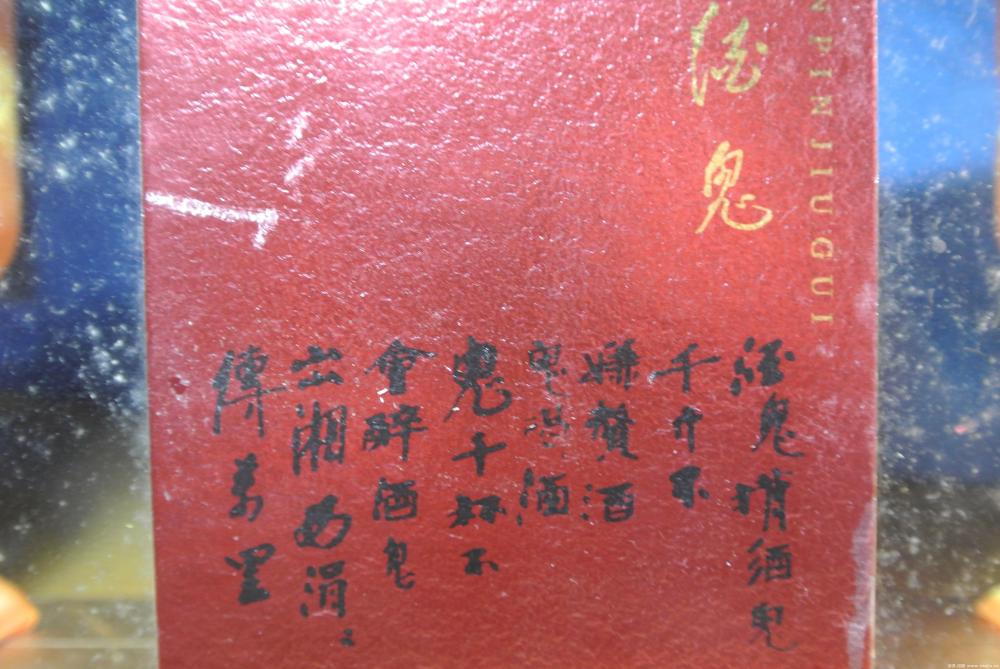 NPINJIUGUI
酒鬼
酒鬼揹酒鬼
千斤不
嫌贅酒
鬼喝酒
鬼十杯不
會醉酒鬼
出湘西涓々
傳萬里